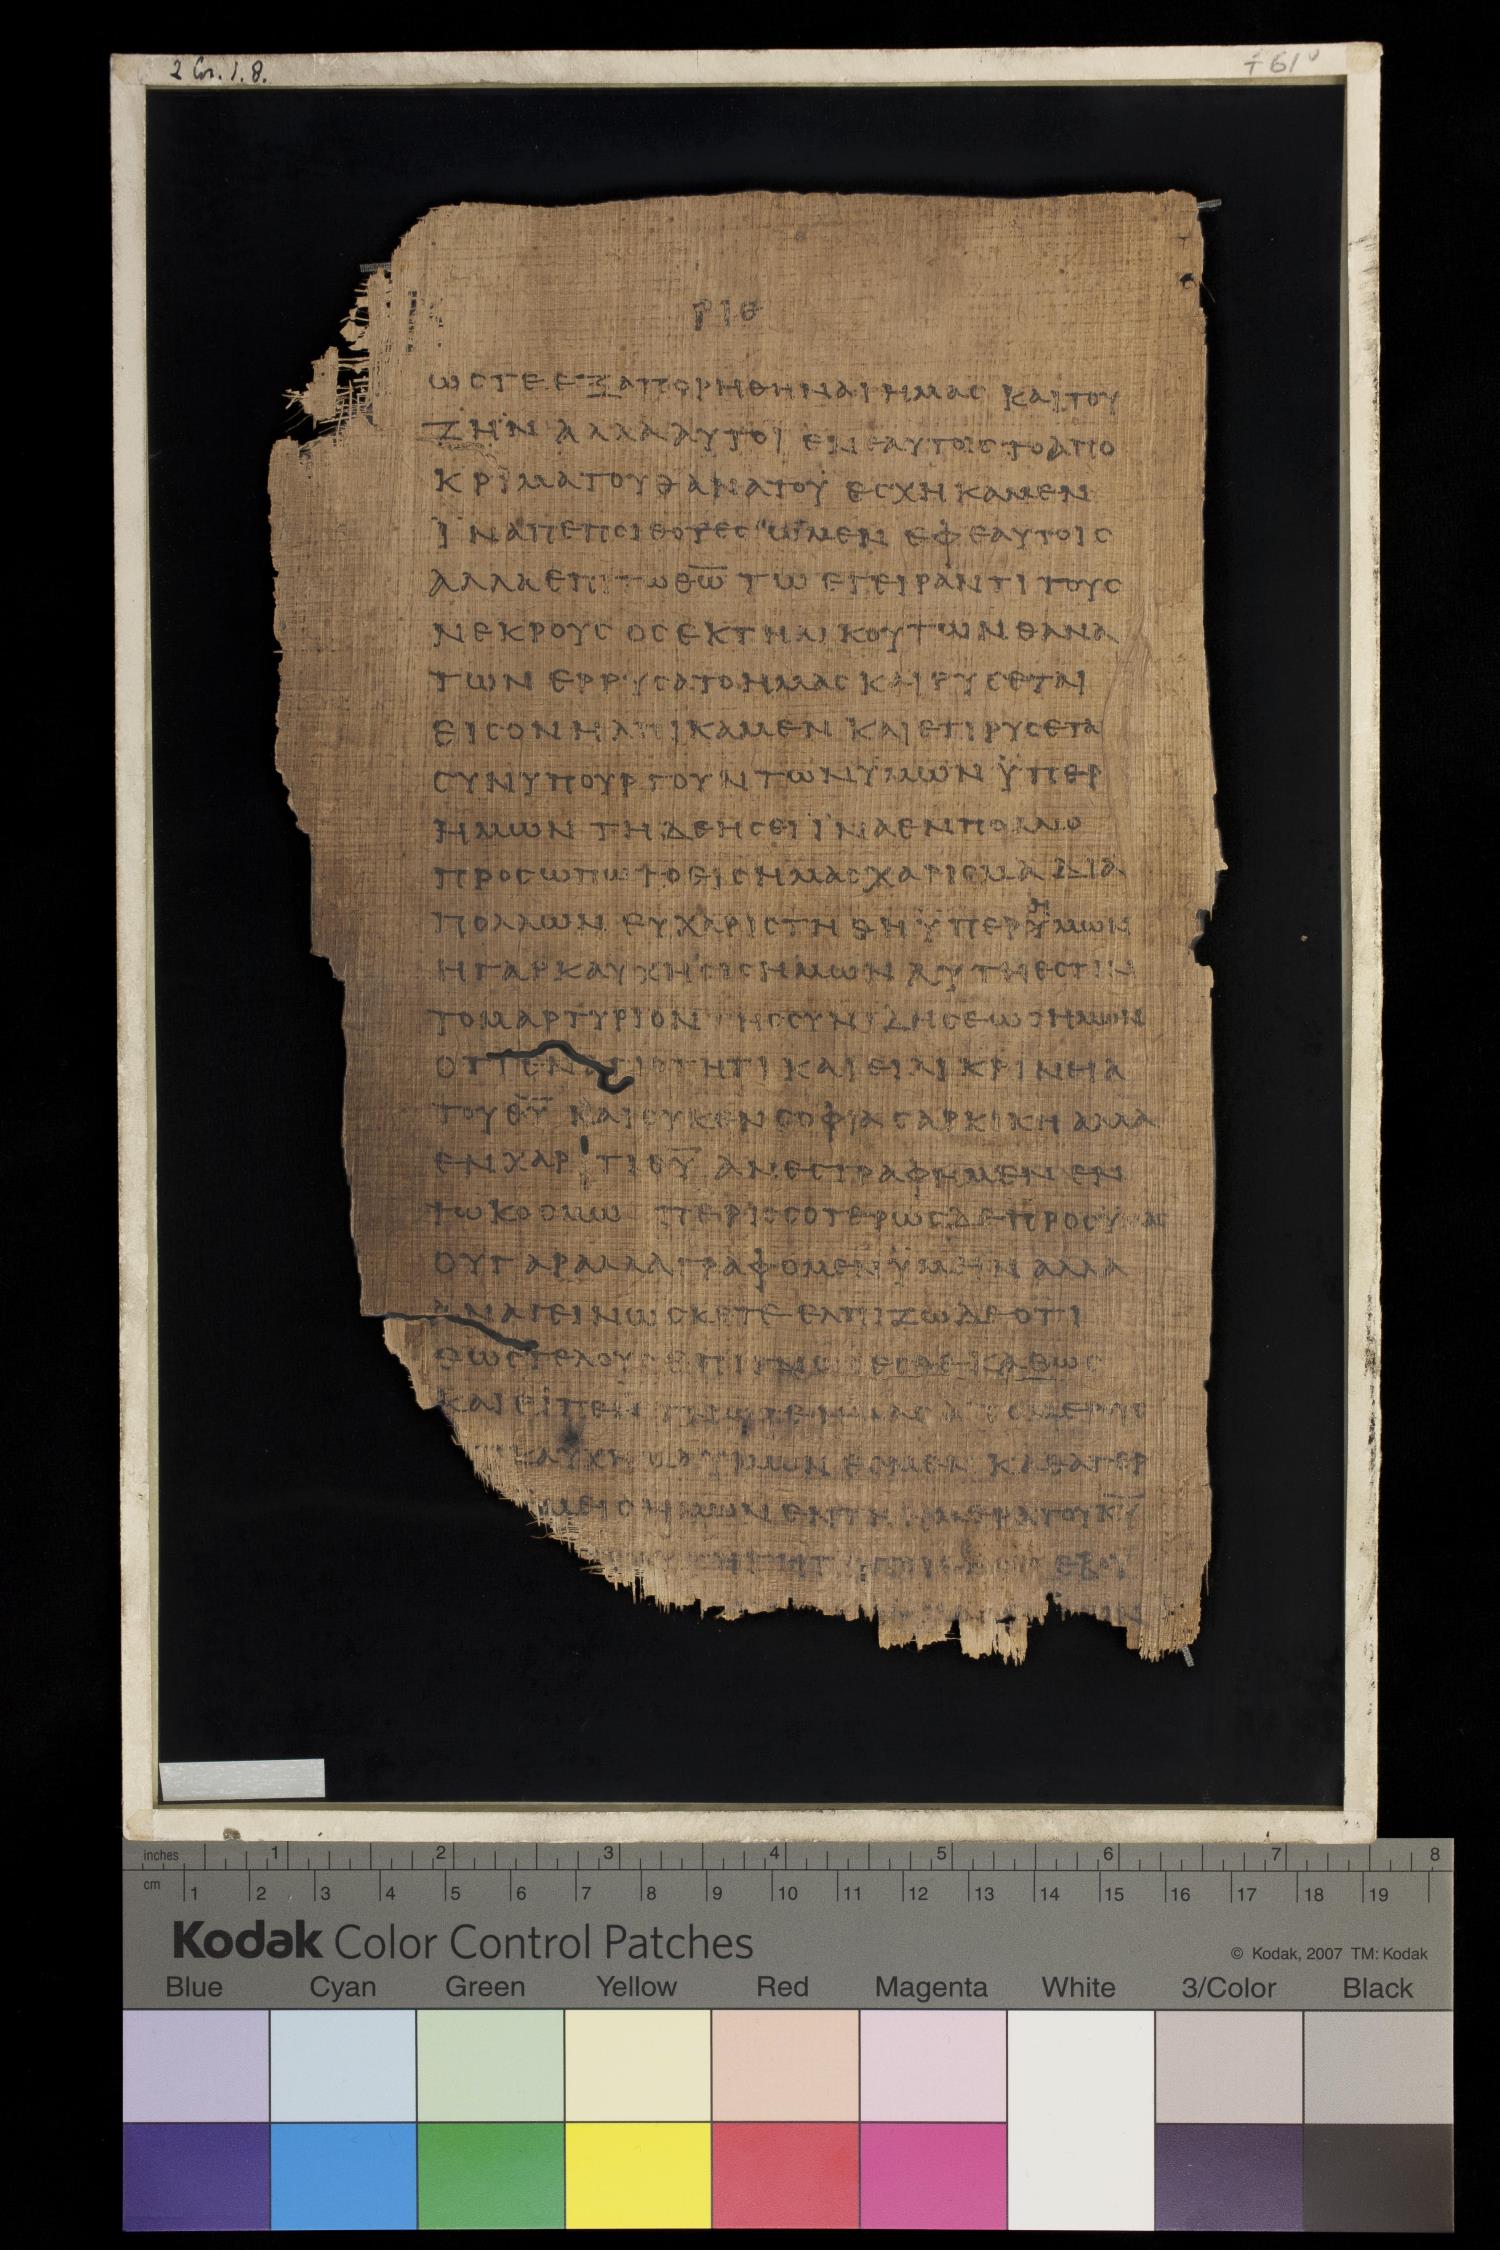 2 Cor. 1. 8.
f 61 v
ΡΙΘ
ΩСΤΕ ΕΞΑΠΟΡΗΘΗΝΑΙ ΗΜΑС ΚΑΙ ΤΟΥ
ΖΗΝ ΑΛΛΑ ΑΥΤΟΙ ΕΝ ΕΑΥΤΟΙС ΤΟ ΑΠΟ
ΚΡΙΜΑ ΤΟΥ ΘΑΝΑΤΟΥ ΕСΧΗΚΑΜΕΝ
ΙΝΑ ΠΕΠΟΙΘΟΤΕС ΩΜΕΝ ΕΦ ΕΑΥΤΟΙС
ΑΛΛΑ ΕΠΙ ΤΩ Θ̅Ω̅ ΤΩ ΕΓΕΙΡΑΝΤΙ ΤΟΥС
ΝΕΚΡΟΥС ΟС ΕΚ ΤΗΛΙΚΟΥΤΩΝ ΘΑΝΑ
ΤΩΝ ΕΡΡΥСΑΤΟ ΗΜΑС ΚΑΙ ΡΥСΕΤΑΙ
ΕΙС ΟΝ ΗΛΠΙΚΑΜΕΝ ΚΑΙ ΕΤΙ ΡΥСΕΤΑ
СΥΝΥΠΟΥΡΓΟΥΝΤΩΝ ΫΜΩΝ ΫΠΕΡ
ΗΜΩΝ ΤΗ ΔΕΗСΕΙ ΙΝΑ ΕΝ ΠΟΛΛΩ
ΠΡΟСΩΠΩ ΤΟ ΕΙС ΗΜΑС ΧΑΡΙСΜΑ ΔΙΑ
ΠΟΛΛΩΝ ΕΥΧΑΡΙСΤΗΘΗ ΫΠΕΡ ΫΜΩΝ
Η ΓΑΡ ΚΑΥΧΗСΙС ΗΜΩΝ ΑΥΤΗ ΕСΤΙΝ
ΤΟ ΜΑΡΤΥΡΙΟΝ ΤΗС СΥΝΙΔΗСΕΩС ΗΜΩΝ
ΟΤΙ ΕΝ ΑΓΙΟΤΗΤΙ ΚΑΙ ΕΙΛΙΚΡΙΝΗΑ
ΤΟΥ Θ̅Υ̅ ΚΑΙ ΟΥΚ ΕΝ СΟΦΙΑ СΑΡΚΙΚΗ ΑΛΛΑ
ΕΝ ΧΑΡΙΤΙ Θ̅Υ̅ ΑΝΕСΤΡΑΦΗΜΕΝ ΕΝ
ΤΩ ΚΟСΜΩ ΠΕΡΙССΟΤΕΡΩС ΔΕ ΠΡΟС ΫΜΑС
ΟΥ ΓΑΡ ΑΛΛΑ ΓΡΑΦΟΜΕΝ ΫΜΕΙΝ ΑΛΛΑ
Α ΑΝΑΓΕΙΝΩСΚΕΤΕ ΕΛΠΙΖΩ ΔΕ ΟΤΙ
ΕΩС ΤΕΛΟΥС ΕΠΙΓΝΩСΕСΘΕ ΚΑΘΩС
ΚΑΙ ΕΠΕΓΝΩΤΕ ΗΜΑС ΑΠΟ ΜΕΡΟΥС
ΚΑΥΧΗΜΑ ΫΜΩΝ ΕСΜΕΝ ΚΑΘΑΠΕΡ
ΥΜΕΙС ΗΜΩΝ ΕΝ ΤΗ ΗΜΕΡΑ ΤΟΥ Κ̅Υ̅
ΕΒΟΥ
inches 1 2 3 4 5 6 7 8
cm 1 2 3 4 5 6 7 8 9 10 11 12 13 14 15 16 17 18 19
Kodak Color Control Patches
© Kodak, 2007 TM: Kodak
Blue Cyan Green Yellow Red Magenta White 3/Color Black